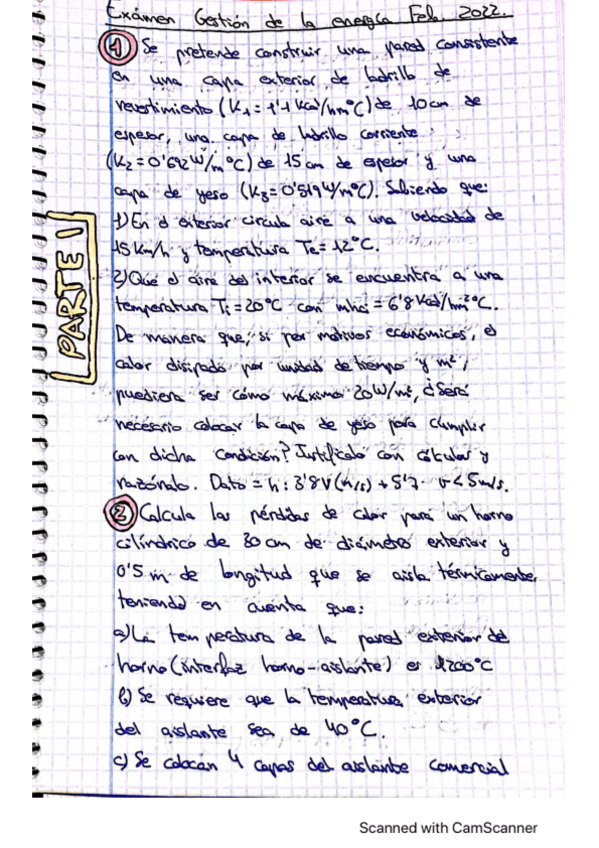 Exámen Gestión de la energía Feb. 2022.
① Se pretende construir una pared consistente
en una capa exterior de ladrillo de
revestimiento (K1=1'1 Kcal/hm°C) de 10cm de
espesor, una capa de ladrillo corriente
(K2=0'692W/m°C) de 15 cm de espesor y una
capa de yeso (K3=0'519W/m°C). Sabiendo que:
1) En el exterior circula aire a una velocidad de
15 Km/h y temperatura Te=12°C.
2) Que el aire del interior se encuentra a una
temperatura Ti=20°C con hci=6'8 Kcal/hm²°C.
De manera que, si por motivos económicos, el
calor disipado por unidad de tiempo y m²,
pudiera ser cómo máximo 20W/m², ¿Será
necesario colocar la capa de yeso para cumplir
con dicha condición? Justifícalo con cálculos y
razónalo. Dato = h: 3'8V(m/s) + 5'7 v<5m/s.
② Calcula las pérdidas de calor para un horno
cilíndrico de 30 cm de diámetro exterior y
0'5 m de longitud que se aisla térmicamente,
teniendo en cuenta que:
a) La temperatura de la pared exterior del
horno (interfaz horno-aislante) es 1200°C
b) Se requiere que la temperatura exterior
del aislante sea de 40°C.
c) Se colocan 4 capas del aislante comercial
PARTE 1
Scanned with CamScanner